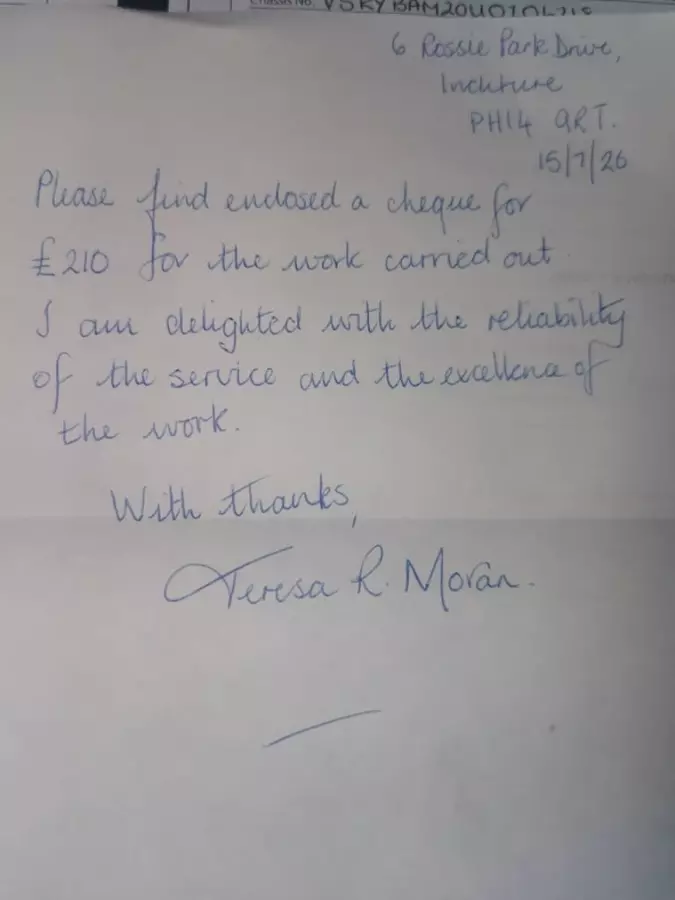 Chassis No.
6 Rossie Park Drive,
Inchture
PH14 9RT.
15/7/26
Please find enclosed a cheque for
£210 for the work carried out
I am delighted with the reliability
of the service and the excellence of
the work.
With thanks,
Teresa R. Moran.